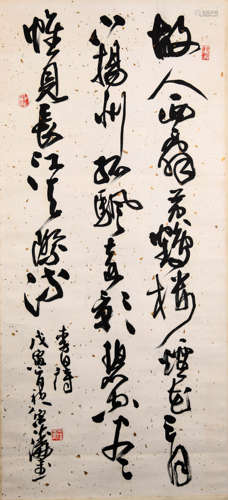 故人西辭黄鶴樓煙花三月
下揚州孤颿遠影碧空尽
惟見長江天際流
李白詩
戊寅